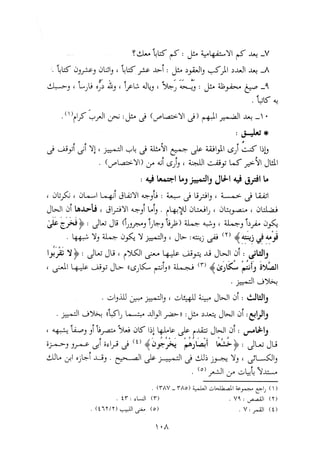 ٧ــ بعد كم الاستفهامية مثل : كم كتاباً معك ؟
٨ــ بعد العدد المركب والعقود مثل : أحد عشر كتاباً ، واثنان وعشرون كتاباً .
٩ــ صيغ محفوظة مثل : ويحَه رَجلاً ، وياله شاعراً ، ولله درُّه فارساً ، وحسبك
به كاتباً .
١٠ــ بعد الضمير المبهم ( فى الاختصاص ) فى مثل : نحن العربَ كرام (١) .
* تعليــق :
وإذا كنتُ أرى الموافقة على جميع الأمثلة فى باب التمييز ، إلا أنى أتوقف فى
المثال الأخير كما توقفت اللجنة ، وأرى أنه من ( الاختصاص ) .
ما افترق فيه الحال والتمييز وما اجتمعا فيه :
اتفقا فى خمسة ، وافترقا فى سبعة : فأوجه الاتفاق أنهما اسمان ، نكرتان ،
فضلتان ، منصوبتان ، رافعتان للإبهام . وأما أوجه الافتراق ، فأحدها أن الحال
يكون مفرداً وجملة ، وشبه جملة ( ظرفاً وجاراً ومجروراً ) قال تعالى : ﴿ فَخَرَجَ عَلَىٰ
قَوْمِهِ فِي زِينَتِهِ ﴾ (٢) ففى زينته : حال ، والتمييز لا يكون جملة ولا شبهها .
والثانى : أن الحال قد يتوقف عليها معنى الكلام ، قال تعالى : ﴿ لا تَقْرَبُوا
الصَّلاةَ وَأَنتُمْ سُكَارَىٰ ﴾ (٣) فجملة « وأنتم سكارى » حال توقف عليها المعنى ،
بخلاف التمييز .
والثالث : أن الحال مبينة للهيئات ، والتمييز مبين للذوات .
والرابع : أن الحال يتعدد مثل : « حضر الوالد مبتسما راكباً » بخلاف التمييز .
والخامس : أن الحال تتقدم على عاملها إذا كان فعلاً متصرفاً أو وصفاً يشبهه ،
قال تعالى : ﴿ خُشَّعًا أَبْصَارُهُمْ يَخْرُجُونَ ﴾ (٤) فى قراءة أبى عمرو وحمزة
والكسائى ، ولا يجوز ذلك فى التمييز على الصحيح . وقد أجازه ابن مالك
مستدلاً بأبيات من الشعر (٥) .
(١) راجع مجموعة المصطلحات العلمية ( ٣٨٥ ــ ٣٨٧ ) .
(٢) القصص : ٧٩ .
(٣) النساء : ٤٣ .
(٤) القمر : ٧ .
(٥) مغنى اللبيب ( ٤٦٢/٢ )
١٠٨